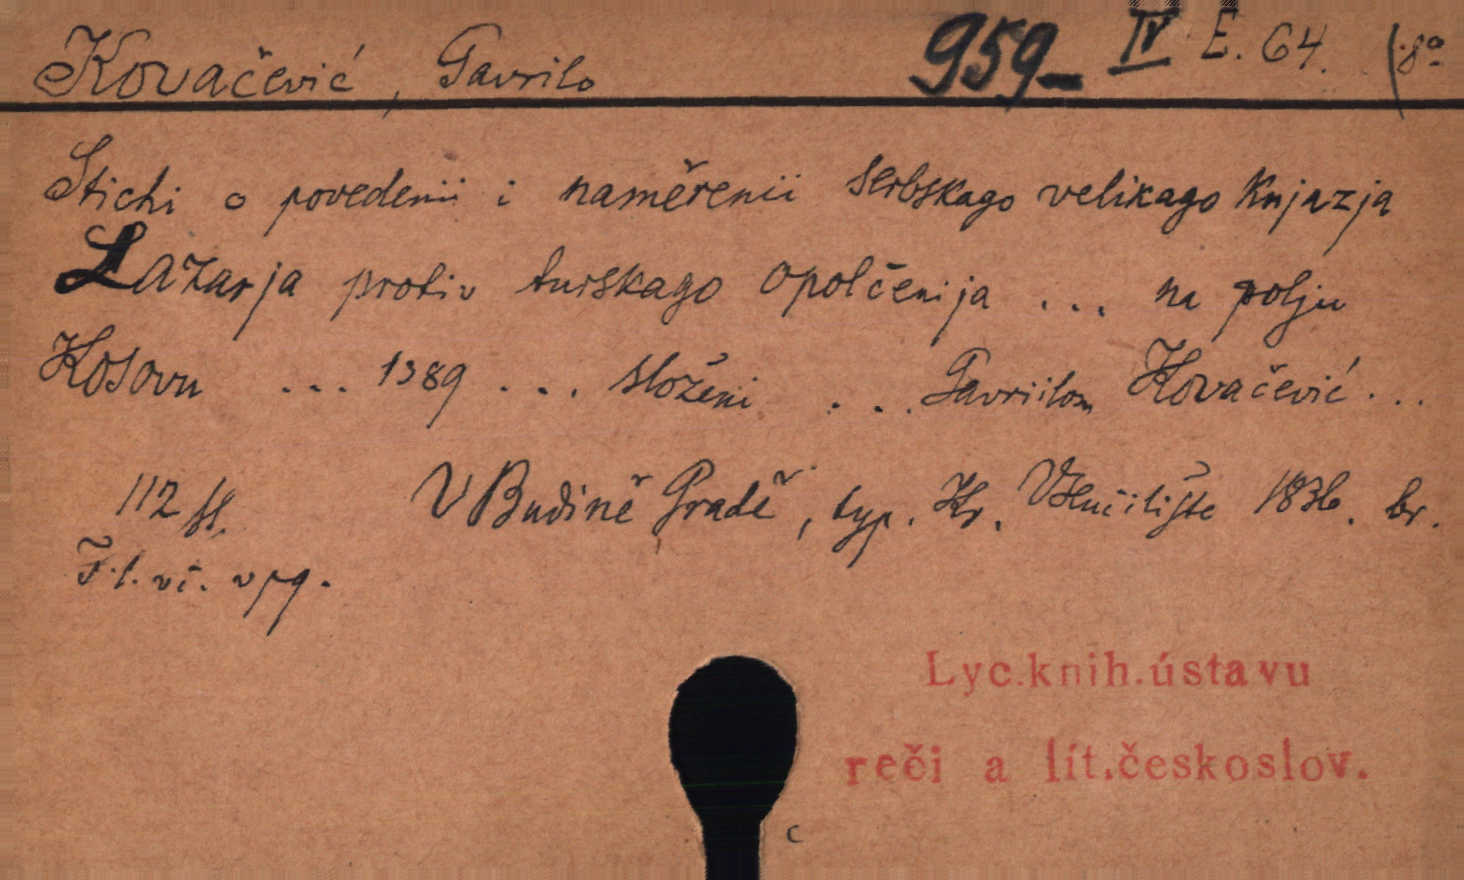 Kovačević, Gavrilo 959- IV E. 64. (8°
Stichi o povedenii i naměrenii serbskago velikago Knjazja
Lazarja protiv turskago opolčenija ... na polju
Kosovu ... 1389 ... složeni ... Gavriilom Kovačević ...
112 st. V Budině Gradě, typ. Kr. Vseučilište 1836. br.
F. l. vč. v pg.
Lyc.knih.ústavu
reči a lít.českoslov.
c